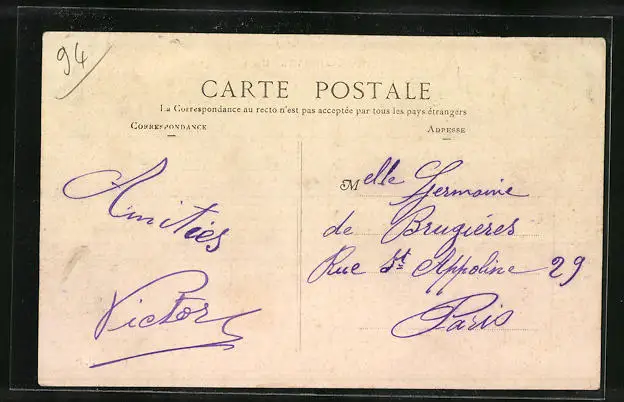 94
CARTE POSTALE
La Correspondance au recto n'est pas acceptée par tous les pays étrangers
CORRESPONDANCE
ADRESSE
Amitiés
Victor
Melle Germaine
de Brugières
Rue St Appoline 29
Paris